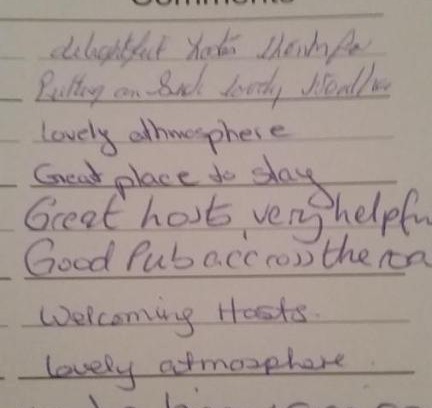 Comments
delightful
Putting on such lovely
Lovely athmosphere
Great place to stay
Great hosts, very helpfu
Good Pub accross the roa
Welcoming Hosts.
lovely atmosphere